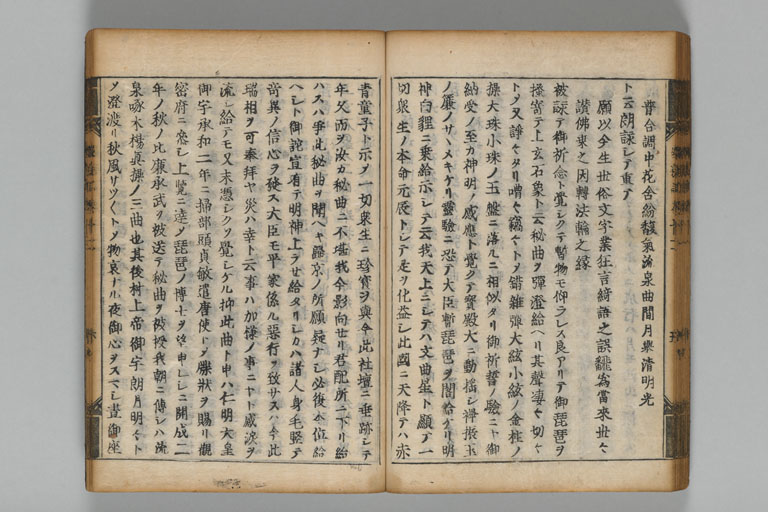 普合調中花含紛馥氣流泉曲間月擧清明光
ト云朗詠シテ重テ
願以今生世俗文字業狂言綺語之誤飜為當來世々
讃佛乗之因轉法輪之縁
被詠テ御祈念ト覺シクテ暫物モ仰ラレス良アリテ御琵琶ヲ
掻寄テ上玄石象ト云秘曲ヲ彈澄給ヘリ其聲凄々切々
トメ又諍々タリ嘈々竊々トメ錯雜彈大絃小絃ノ金柱ノ
操大珠小珠ノ玉盤ニ落ルニ相似タリ御祈誓ノ驗ニヤ御
納受ノ至カ神明ノ感應ト覺クテ寳殿大ニ動揺シ禅振玉
ノ簾ノサヽメキケリ靈驗ニ恐テ大臣暫琵琶ヲ閣給ケリ明
神白貍ニ乗給示シテ云我天上ニシテハ文曲星ト顯テ一
切衆生ノ本命元辰トシテ是ヲ化益シ此國ニ天降テハ赤
青童子ト示メ一切衆生ニ珍寳ヲ與今此社壇ニ垂跡シテ
年久而ヲ汝カ秘曲ニ不堪我今影向セリ君配所ニ下リ給
ハスハ爭此秘曲ヲ聞ヘキ歸京ノ所願疑ナシ必復本位給
ヘシト御詫宣有テ明神上ラセ給タリシカハ諸人身毛竪テ
竒異ノ信心ヲ發ス大臣モ平家係ル惡行ヲ致サスハ今此
瑞相ヲ可奉拜ヤ災ハ幸ト云事ハ加様ノ事ニヤト感涙ヲ
流シ給テモ又末憑シクソ覺シケル抑此曲ト申ハ仁明天皇
御宇承和二年ニ掃部頭貞敏遣唐使トメ牒狀ヲ賜リ觀
密府ニ恣シ上覽ニ達メ琵琶ノ博士ヲ望申シシニ開成二
年ノ秋ノ比廉承武ヲ被送テ秘曲ヲ被授我朝ニ傳シハ流
泉啄木楊眞操ノ三曲也其後村上帝御宇朗月明々ト
メ澄渡リ秋風サツ〱トメ物哀ナル夜御心ヲスマシ晝御座